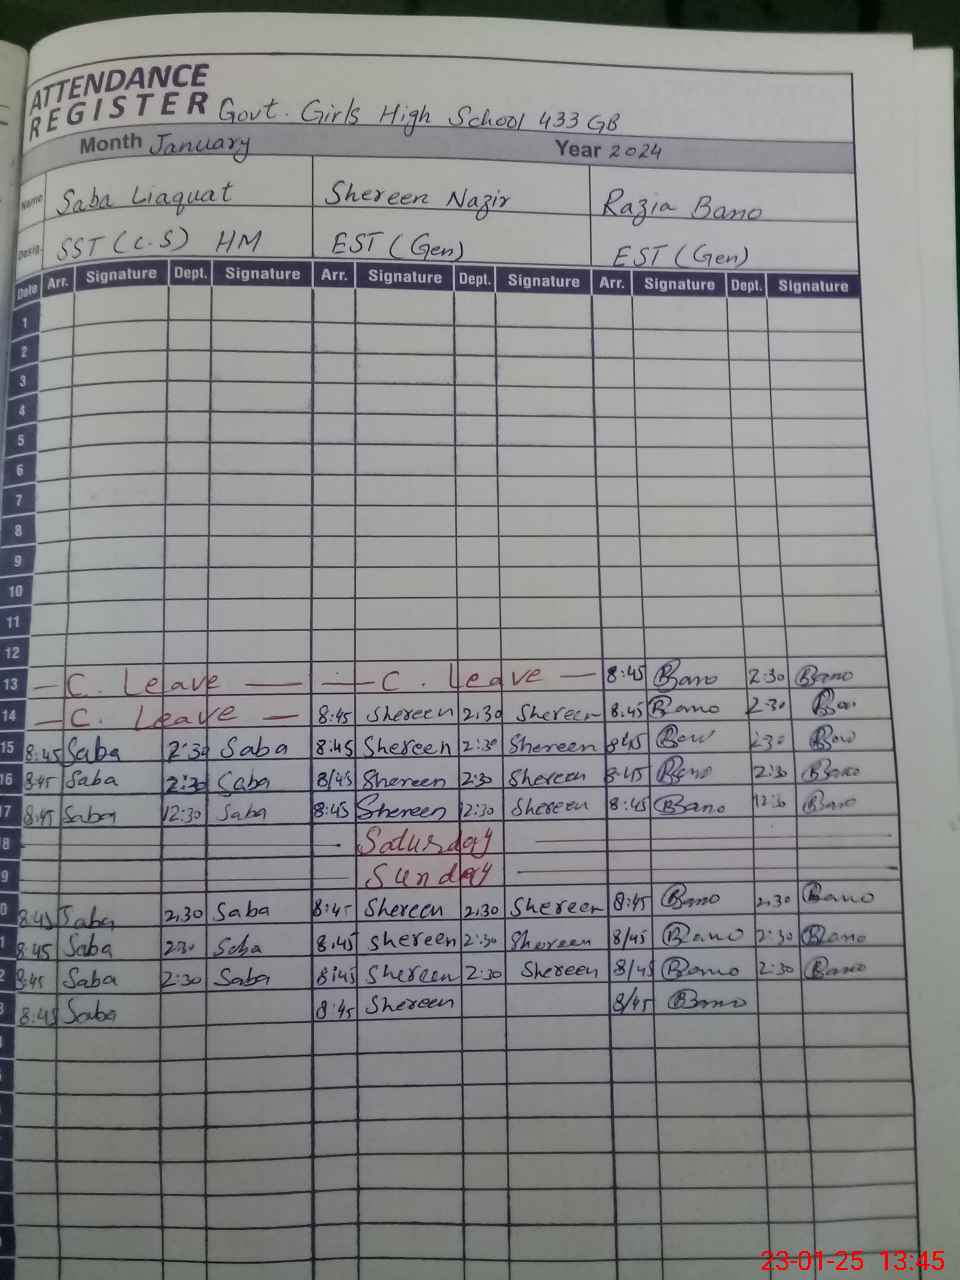 ATTENDANCE
REGISTER Govt. Girls High School 433 GB
Month January Year 2024
Name Saba Liaquat Shereen Nazir Razia Bano
Desig. SST (C.S) HM EST (Gen) EST (Gen)
Date Arr. Signature Dept. Signature Arr. Signature Dept. Signature Arr. Signature Dept. Signature
1
2
3
4
5
6
7
8
9
10
11
12
13 — C. Leave — — C. Leave — 8:45 Bano 2:30 Bano
14 — C. Leave — 8:45 Shereen 2:30 Shereen 8:45 Bano 2:30
15 8:45 Saba 2:30 Saba 8:45 Shereen 2:30 Shereen 8:45 2:30
16 8:45 Saba 2:30 Saba 8/45 Shereen 2:30 Shereen 8:45 Bano 2:30 Bano
17 8:45 Saba 12:30 Saba 8:45 Shereen 12:30 Shereen 8:45 Bano 12:30 Bano
8 Saturday
9 Sunday
0 8:45 Saba 2,30 Saba 8:45 Shereen 2,30 Shereen 8:45 Bano 2,30 Bano
1 8:45 Saba 2:30 Saba 8:45 Shereen 2:30 Shereen 8/45 Bano 2:30 Bano
2 8:45 Saba 2:30 Saba 8:45 Shereen 2:30 Shereen 8/45 Bano 2:30 Bano
3 8:45 Saba 8:45 Shereen 8/45 Bano
23-01-25 13:45